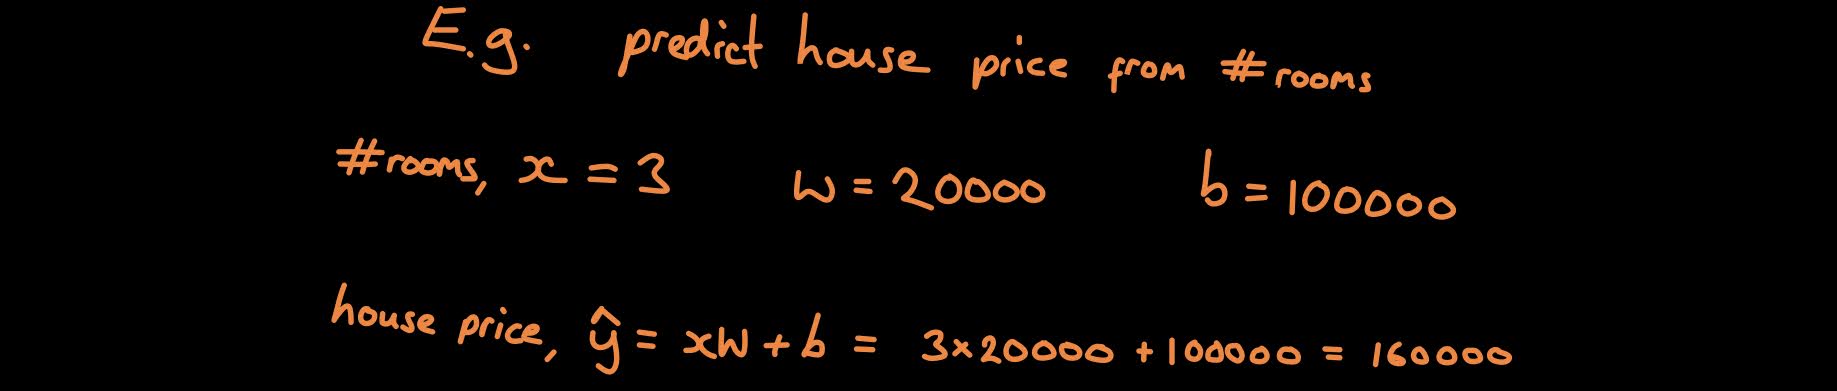 E.g. predict house price from #rooms
#rooms, x = 3 w = 20000 b = 100000
house price, ŷ = xw + b = 3×20000 + 100000 = 160000